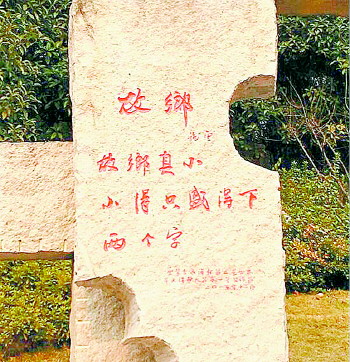 故鄉
故鄉真小
小得只盛得下
两个字